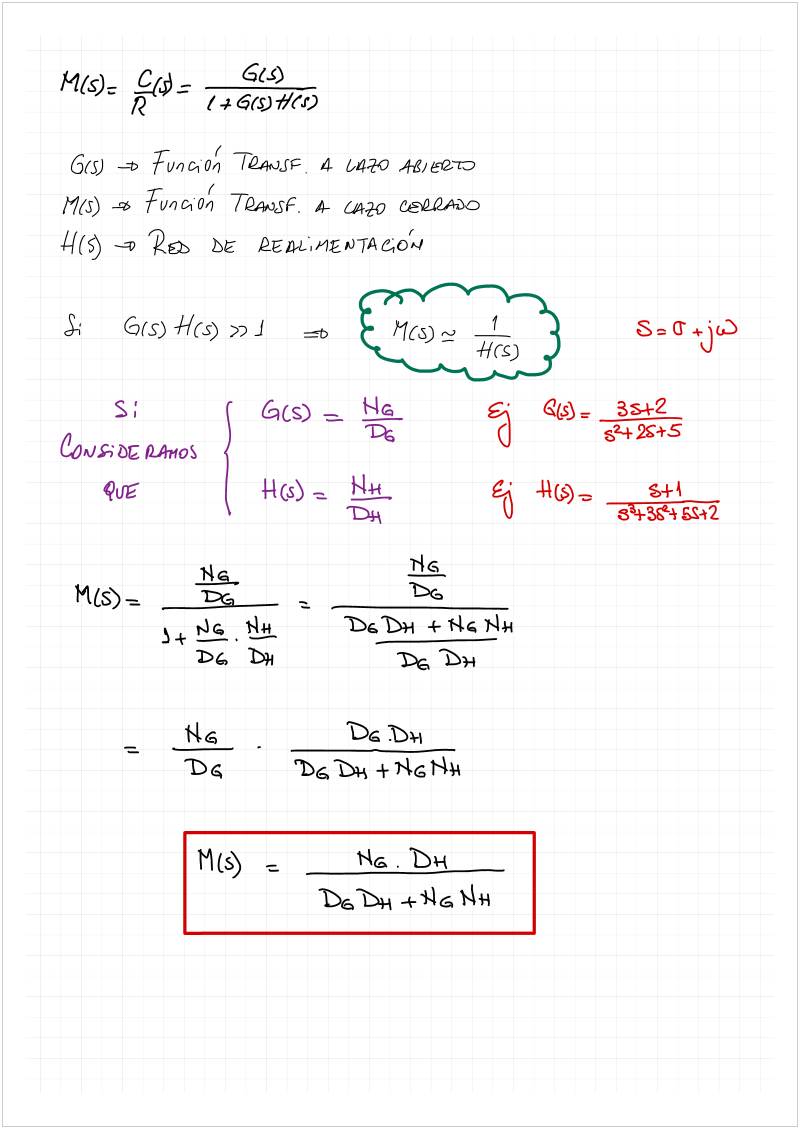 M(s) = C/R (s) = G(s) / (1 + G(s) H(s))
G(s) → FUNCIÓN TRANSF. A LAZO ABIERTO
M(s) → FUNCIÓN TRANSF. A LAZO CERRADO
H(s) → RED DE REALIMENTACIÓN
Si G(s) H(s) >> 1 ⇒ M(s) ≃ 1 / H(s) s = σ + jω
Si CONSIDERAMOS QUE
G(s) = NG / DG Ej G(s) = (3s+2) / (s²+2s+5)
H(s) = NH / DH Ej H(s) = (s+1) / (s³+3s²+5s+2)
M(s) = (NG/DG) / (1 + NG/DG . NH/DH) = (NG/DG) / ((DG DH + NG NH) / (DG DH))
= NG/DG . (DG . DH) / (DG DH + NG NH)
M(s) = (NG . DH) / (DG DH + NG NH)